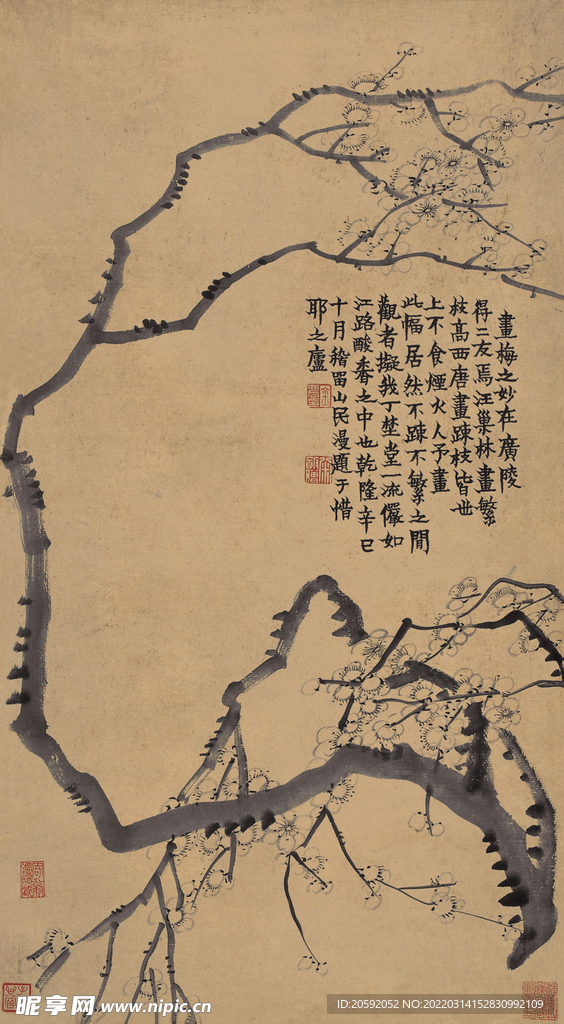 畫梅之妙在廣陵
得二友焉汪巢林畫繁
枝高西唐畫踈枝皆世
上不食煙火人予畫
此幅居然不踈不繁之間
觀者擬我丁埜堂一流儼如
江路酸香之中也乾隆辛巳
十月稽留山民漫題于惜
耶之廬
昵享网 www.nipic.cn
ID:20592052 NO:20220314152830992109